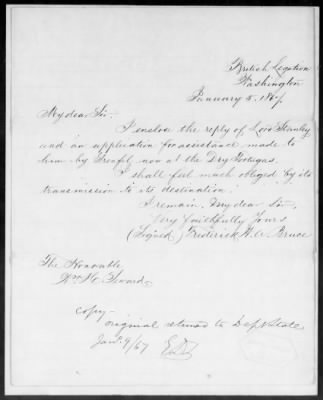 British Legation
Washington
January 5. 1867.
My dear Sir.
I enclose the reply of Lord Stanley
and an application for assistance made to
him by Grenfel, now at the Dry Tortugas.
I shall feel much obliged by its
transmission to its destination.
I remain, My dear Sir,
Very faithfully Yours
(Signed) Frederick W. A. Bruce
The Honorable
Wm H. Seward.
copy-
original returned to Dep. State
Jany. 9/67